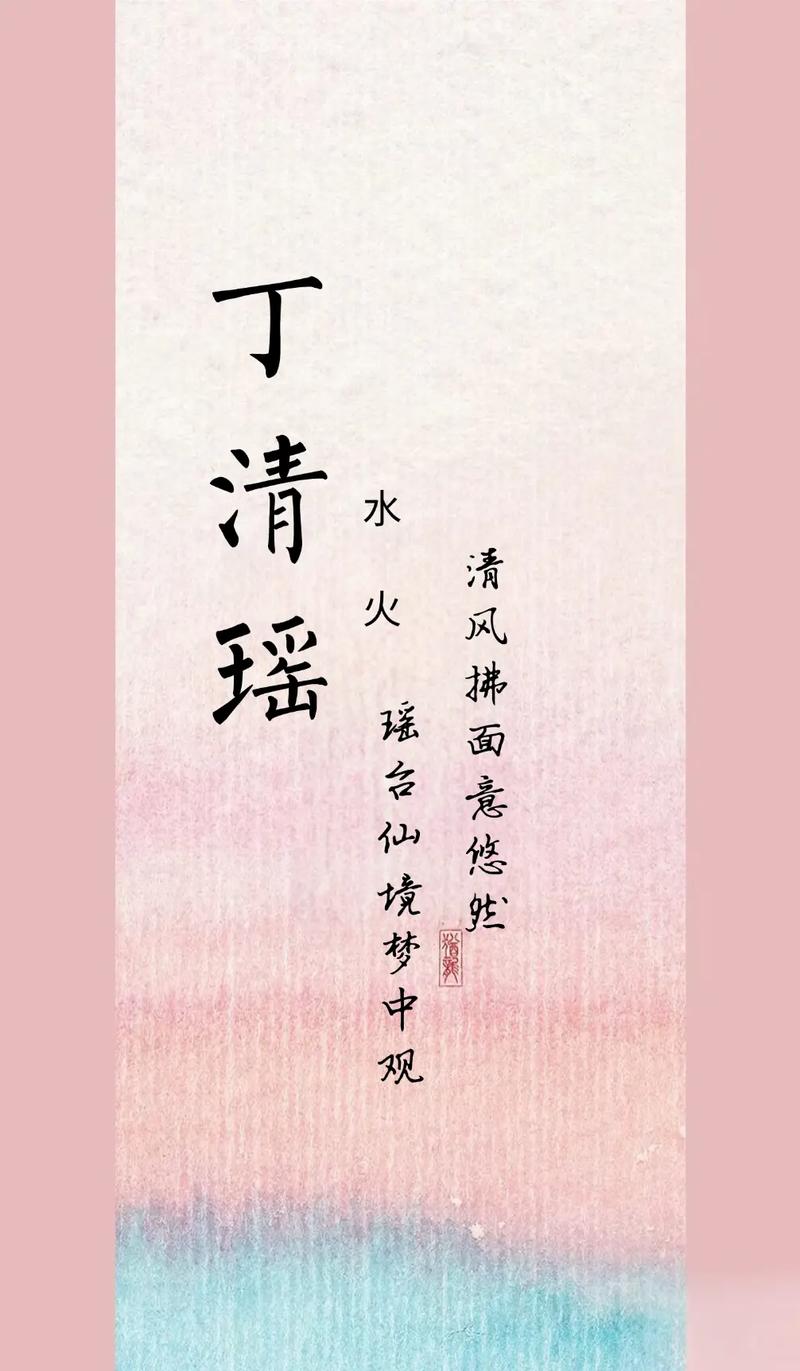 丁清瑶
水火
清风拂面意悠然
瑶台仙境梦中观